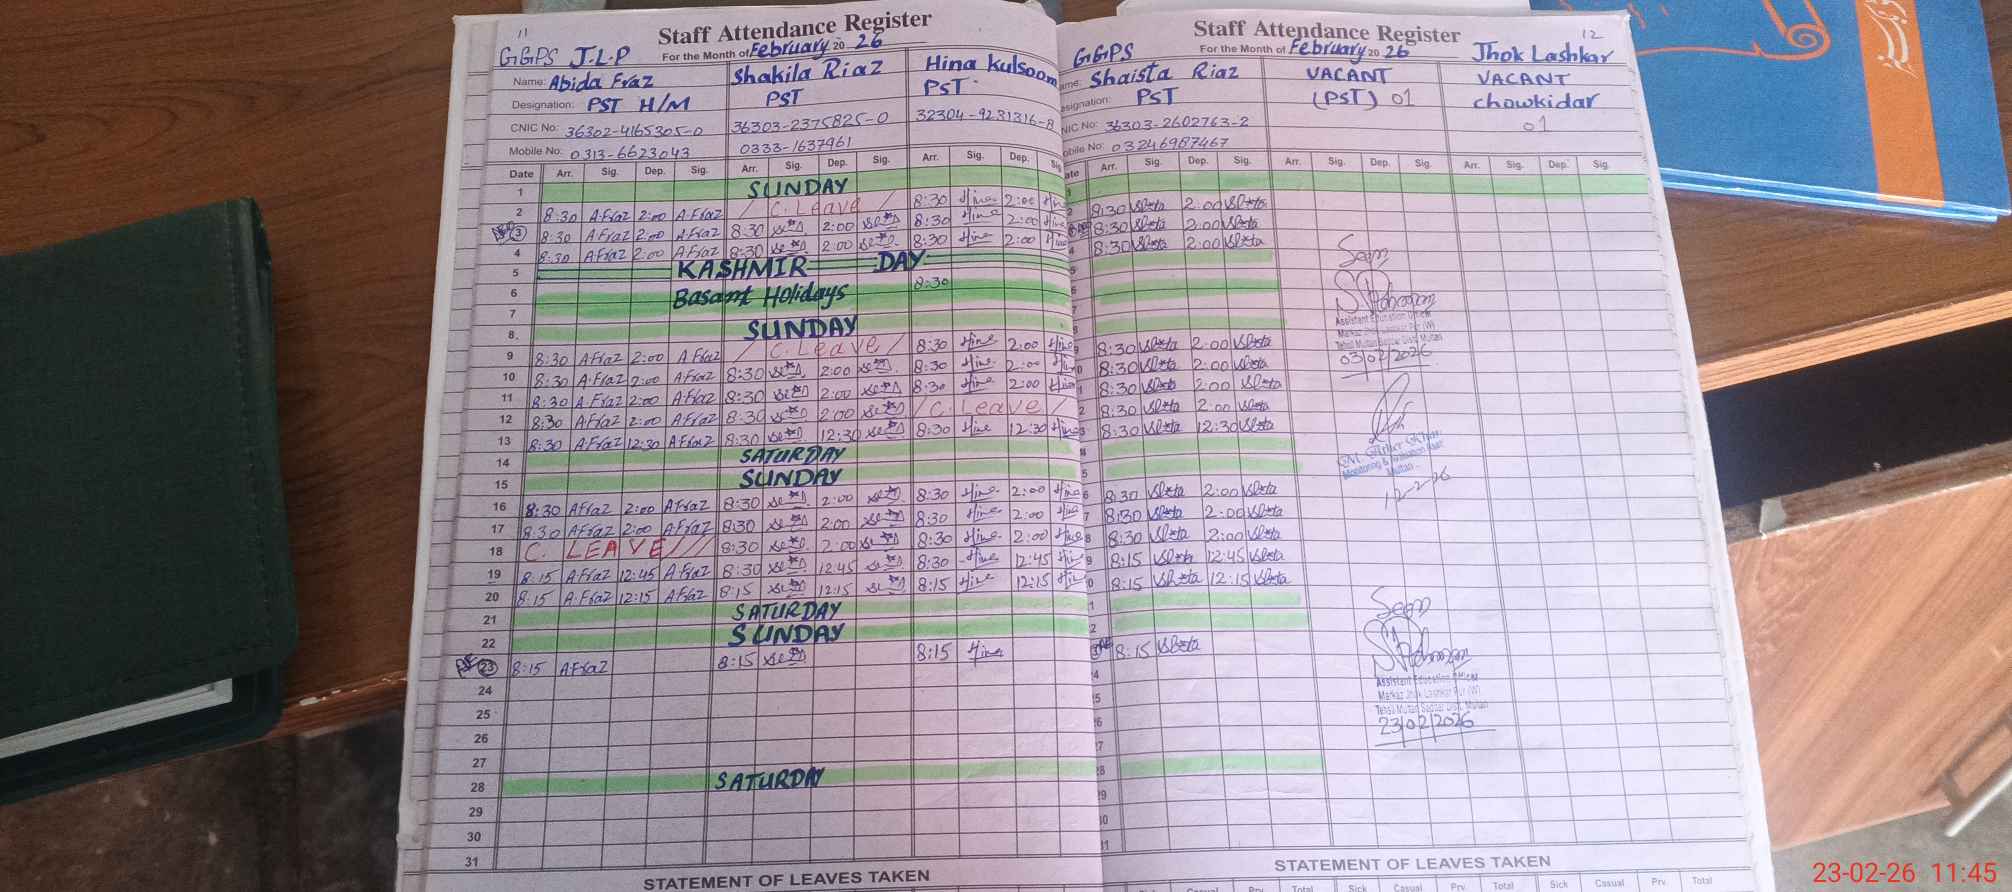 11
Staff Attendance Register
GGPS J.L.P For the Month of February 20 26
Name: Abida Fraz Shakila Riaz Hina Kulsoom
Designation: PST H/M PST PST
CNIC No: 36302-4165305-0 36303-2375825-0 32304-9231316-8
Mobile No: 0313-6623043 0333-1637961
Date Arr. Sig. Dep. Sig. Arr. Sig. Dep. Sig. Arr. Sig. Dep. Sig
1 SUNDAY
2 8:30 A.Fraz 2:00 A.Fraz / C. Leave / 8:30 Hina 2:00 Hina
3 8:30 A.Fraz 2:00 A.Fraz 8:30 2:00 8:30 Hina 2:00 Hina
4 8:30 A.Fraz 2:00 A.Fraz 8:30 2:00 8:30 Hina 2:00 Hina
5 KASHMIR DAY
6 Basant Holidays 8:30
7
8 SUNDAY
9 8:30 A.Fraz 2:00 A.Fraz / C. Leave / 8:30 Hina 2:00 Hina
10 8:30 A.Fraz 2:00 A.Fraz 8:30 2:00 8:30 Hina 2:00
11 8:30 A.Fraz 2:00 A.Fraz 8:30 2:00 8:30 Hina 2:00
12 8:30 A.Fraz 2:00 A.Fraz 8:30 2:00 / C. Leave /
13 8:30 A.Fraz 12:30 A.Fraz 8:30 12:30 8:30 Hina 12:30 Hina
14 SATURDAY
15 SUNDAY
16 8:30 AFraz 2:00 AFraz 8:30 2:00 8:30 Hina 2:00 Hina
17 8:30 AFraz 2:00 AFraz 8:30 2:00 8:30 Hina 2:00 Hina
18 C. LEAVE 8:30 2:00 8:30 Hina 2:00 Hina
19 8:15 AFraz 12:45 AFraz 8:30 12:45 8:30 Hina 12:45
20 8:15 A.Fraz 12:15 AFraz 8:15 12:15 8:15 Hina 12:15
21 SATURDAY
22 SUNDAY
23 8:15 AFraz 8:15 8:15 Hina
24
25
26
27
28 SATURDAY
29
30
31
STATEMENT OF LEAVES TAKEN
12
Staff Attendance Register
GGPS For the Month of February 20 26 Jhok Lashkar
ame: Shaista Riaz VACANT VACANT
esignation: PST (PST) 01 chowkidar
NIC No: 36303-2602763-2 01
obile No: 03246987467
ate Arr. Sig. Dep. Sig. Arr. Sig. Dep. Sig. Arr. Sig. Dep. Sig.
8:30 2:00
8:30 2:00
8:30 2:00
Seen
Assistant Education Officer
Markaz Jhok Lashkar Pur (W)
Tehsil Multan Saddar Distt. Multan
03/02/2026
8:30 2:00
8:30 2:00
8:30 2:00
8:30 2:00
8:30 12:30
Multan
12-2-26
8:30 2:00
8:30 2:00
8:30 2:00
8:15 12:45
8:15 12:15
8:15
Seen
Assistant Education Officer
Markaz Jhok Lashkar Pur (W)
Tehsil Multan Saddar Distt. Multan
23/02/2026
STATEMENT OF LEAVES TAKEN
Sick Casual Prv. Total Sick Casual Prv. Total Sick Casual Prv. Total
23-02-26 11:45